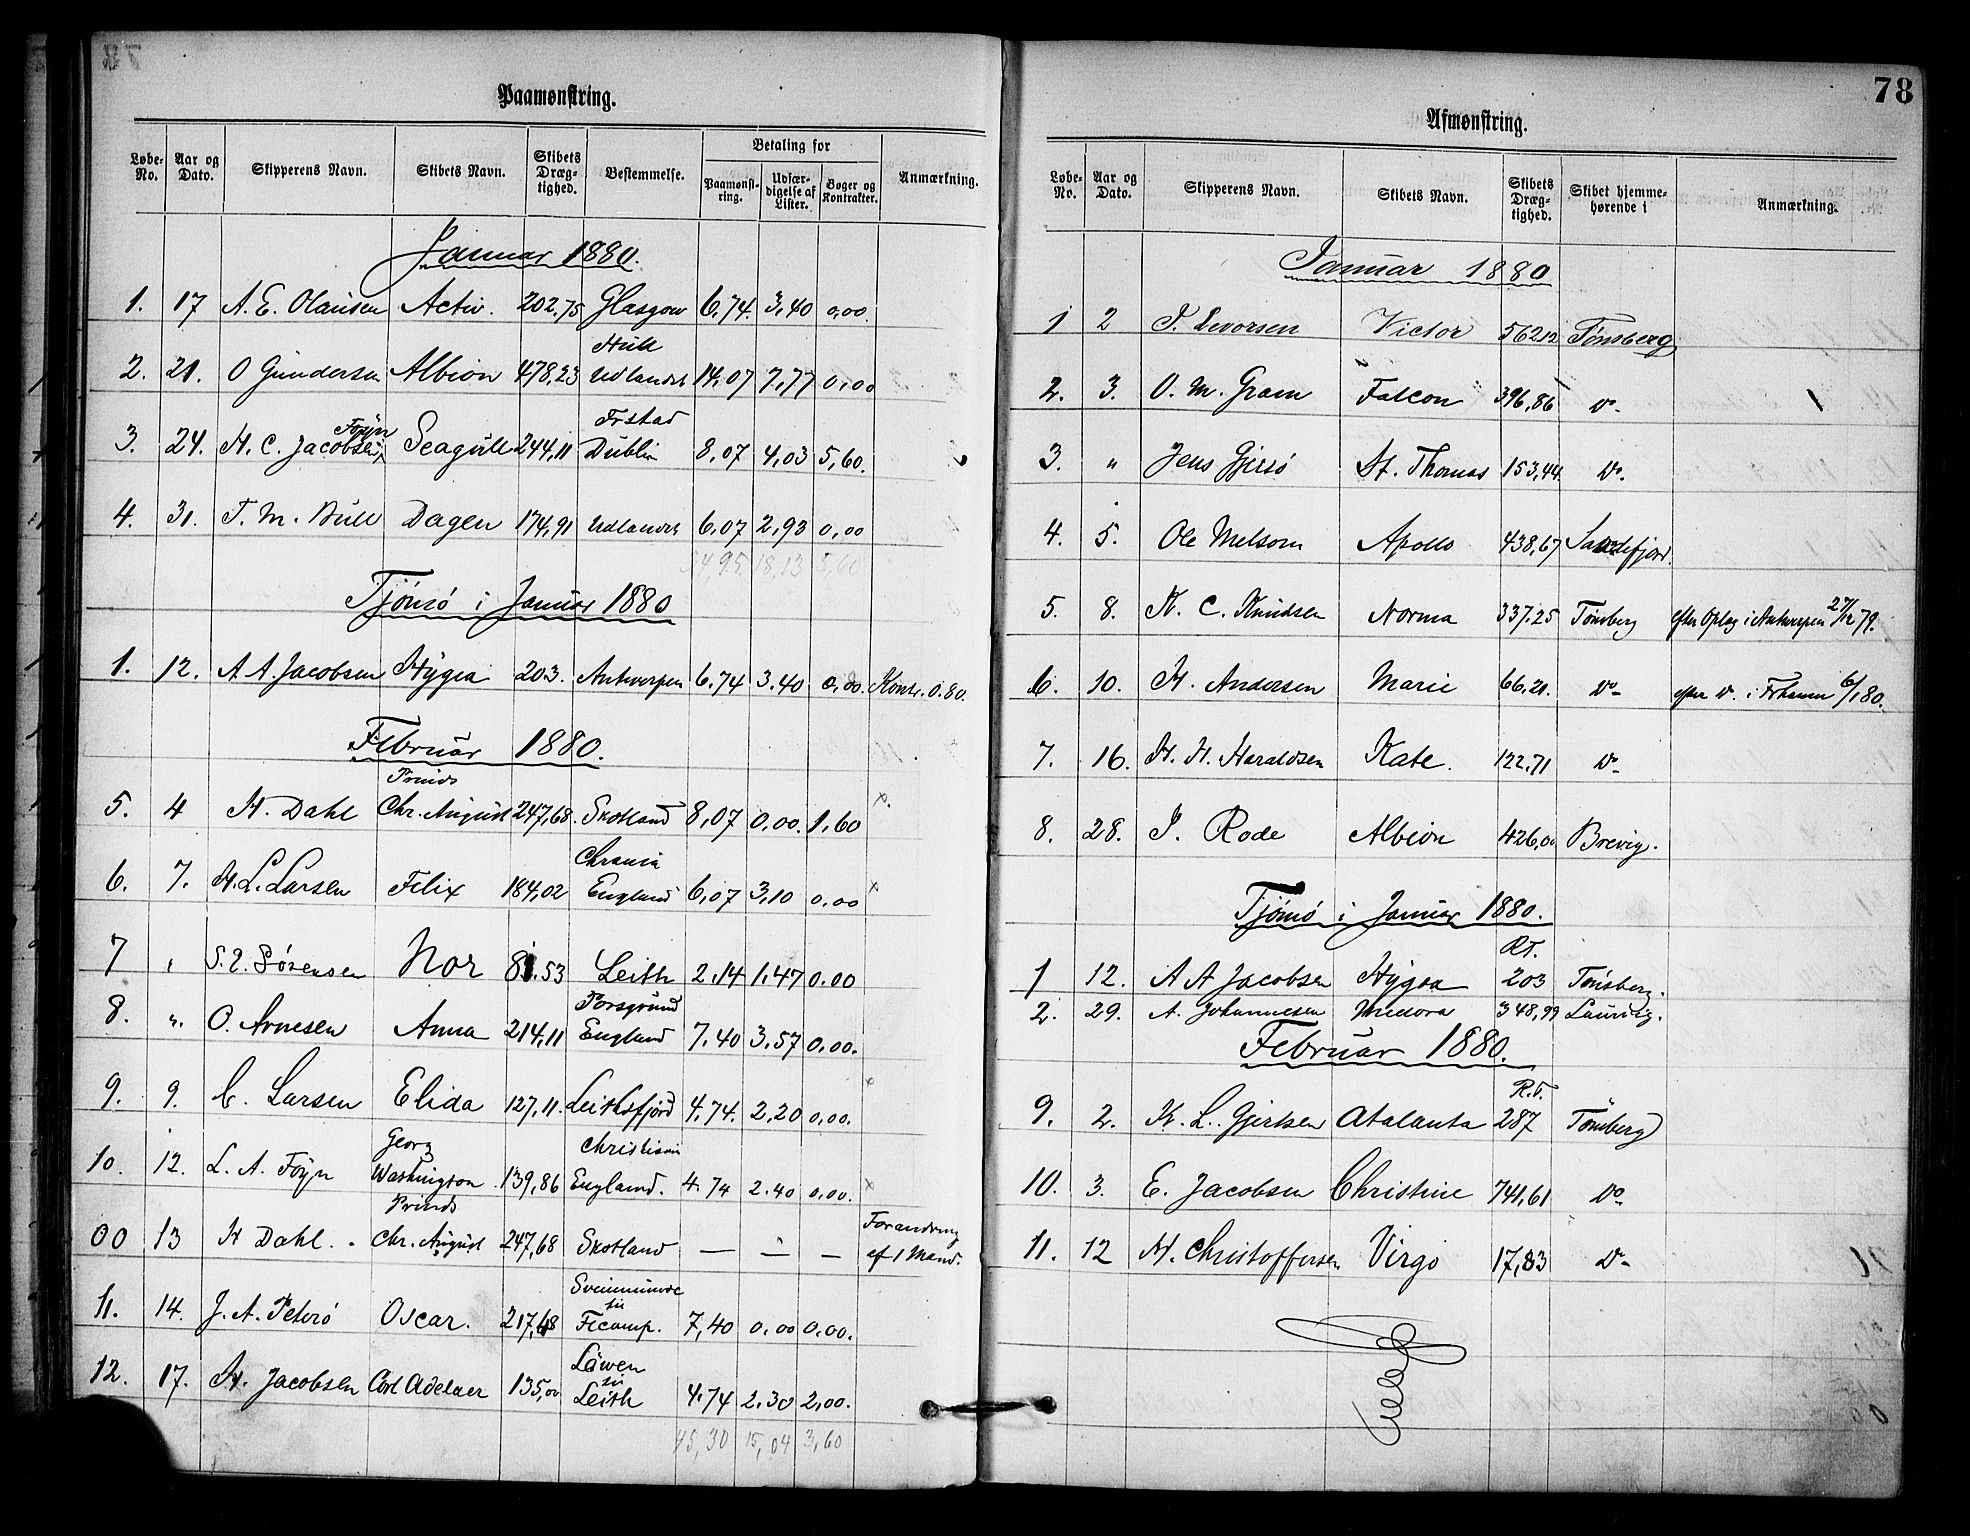 Paamønstring.
Løbe-No. Aar og Dato. Skipperens Navn. Skibets Navn. Skibets Dræg-tighed. Bestemmelse. Betaling for Paamønst-ring. Udfær-digelse af Lister. Bøger og Kontrakter. Anmærkning.
Januar 1880.
1. 17 A. E. Olausen Activ. 202.75 Glasgow 6,74. 3,40 0,00.
Hull
2. 21. O Gundersen Albion 478,23 Udlandet 14,07 7,77 0,00
Føyn Frstad
3. 24. H. C. Jacobsen Seagull 244,11 Dublin 8,07 4,03 5,60.
4. 31. T. M. Bull Dagen 174,91 Udlandet 6,07 2,93 0,00
34,95 18,13 5,60
Tjømø i Januar 1880
1. 12. A A. Jacobsen Hygea 203. Antwerpen 6.74 3.40 0,00. Kontr. 0.80.
Februar 1880.
Prinds
5. 4 H. Dahl Chr. August 247,68. Skotland 8,07 0,00. 1,60 x.
Chrania
6. 7. H. L. Larsen Felix 184,02 England 6,07 3,10 0,00 x
7 " S. E. Sörensen Nor 81.53 Leith 2.14 1,47 0.00
Porsgrund
8. ". O. Arnesen Anna 214,11 England 7.40 3,57 0,00.
9. 9. C. Larsen Elida 127,11. Leithsfjord 4,74. 2,20 0,00. x
Georg Christiania
10. 12. L. A. Föyn Washington 139,86 England. 4.74 2.40 0,00. x
Prinds
00 13 H Dahl. Chr. August 247,68 Skotland — — — Forandring af 1 Mand.
Sveinmünde til
11. 14. J. A. Peterö Oscar. 217,68 Fecamp. 7,40 0,00 0,00.
Läwen til
12. 17. H. Jacobsen Carl Adelaer 135,00 Leith 4.74 2.30 2,00.
45,30 15,04 3,60
78
Afmønstring.
Løbe-No. Aar og Dato. Skipperens Navn. Skibets Navn. Skibets Dræg-tighed. Skibet hjemme-hørende i Anmærkning.
Januar 1880
1 2 T. Evorsen Victor 562,12 Tønsberg
2. 3. O. M. Gram Falcon 396,86 Do.
3. " Jens Gjersö St. Thomas 153,44. Do.
4. 5. Ole Melsom Apollo 438,67 Sandefjord.
5. 8. K. C. Knudsen Norma 337.25 Tønsberg efter Oplag i Antwerpen 27/12 79.
6. 10. H. Andersen Marie 66,21. Do efter Do. i Frhavn 6/1 80.
7. 16. H. H. Haraldsen Kate. 122,71 Do
8. 28. J. Rode Albion 426,00 Brevig.
Tjømø i Januar 1880.
RT.
1 12. A A Jacobsen Hygea 203 Tønsberg.
2. 29. A. Johannesen Medora 348,99 Laurvig.
Februar 1880.
R.T.
9. 2. K. L. Gjertsen Atalanta 287 Tønsberg
10. 3. E. Jacobsen Christine 741,61 Do
11. 12 H. Christoffersen Virgo 17,83 Do